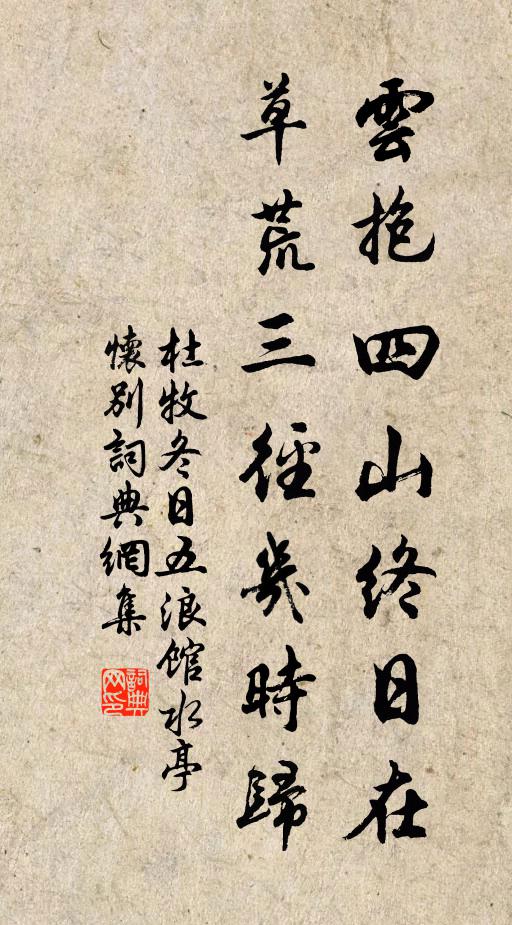 雲抱四山終日在
草荒三徑幾時歸
杜牧冬日五浪館水亭
懷別詞典網集
詞典网印